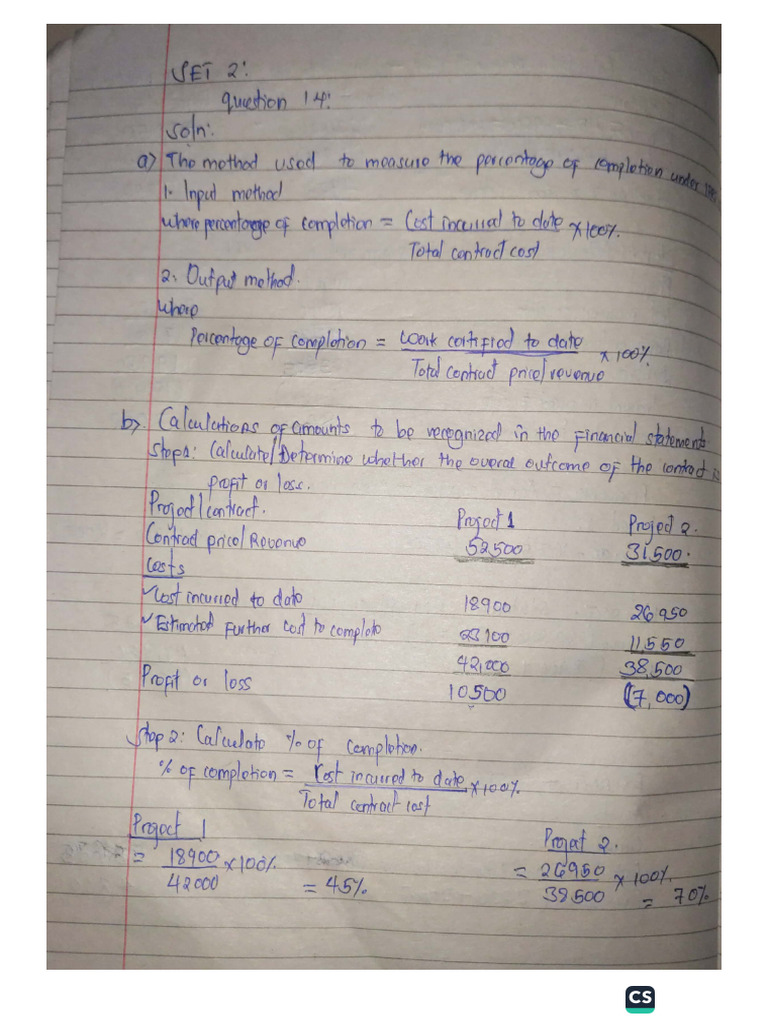 SET 2:
question 14:
Soln:
a) The method used to measure the percentage of completion under
1. Input method
where percentange of completion = Cost incurred to date x100%.
Total contract cost
2. Output method.
where
Percentage of completion = work certified to date x100%
Total contract price/revenue
b) Calculations of amounts to be recognized in the Financial statements
Step1: Calculate/Determine whether the overal outcome of the contract is
profit or loss.
Project/contract. Project 1 Project 2.
Contract price/Revenue 52,500 31,500.
Costs
✓Cost incurred to date 18900 26950
✓Estimated Further cost to complete 23100 11550
42,000 38,500
Profit or loss 10,500 (7,000)
Step 2: Calculate % of completion.
% of completion = Cost incurred to date x100%
Total contract cost
Project 1 Project 2.
= 18900 x100% = 45% = 26950 x100% = 70%
42000 38500
CS